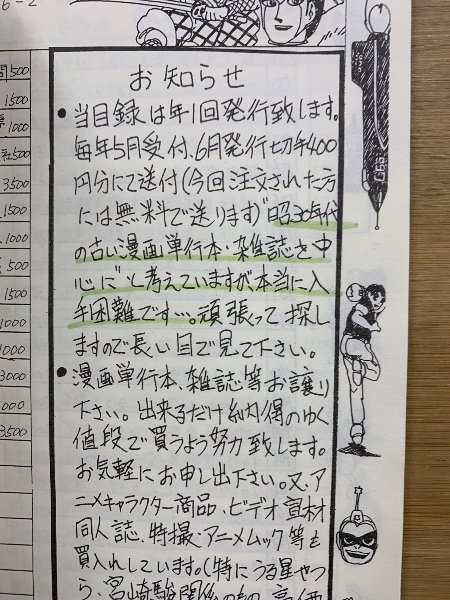 6-2
500
1500
1000
社500
3500
1500
1000
500
1500
1000
1000
3000
000
3500
お知らせ
●当目録は年1回発行致します。
毎年5月受付、6月発行切手400
円分にて送付(今回注文された方
には無料で送ります)"昭30年代
の古い漫画単行本・雑誌を中
心に"と考えていますが本当に入
手困難です…。頑張って探し
ますので長い目で見て下さい。
●漫画単行本、雑誌等お譲り
下さい。出来るだけ納得のゆく
値段で買うよう努力致します。
お気軽にお申し出下さい。又、ア
ニメキャラクター商品、ビデオ宣材
同人誌、特撮、アニメムック等も
買入れしています。(特にうる星やつ
ら、宮崎駿関係のもの、高価